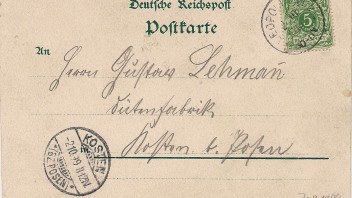 Deutsche Reichspost
Postkarte
An
Herrn Gustav Lehmann
Dütenfabrik
Kosten b. Posen
5
KOSTEN
(BZ. POSEN)